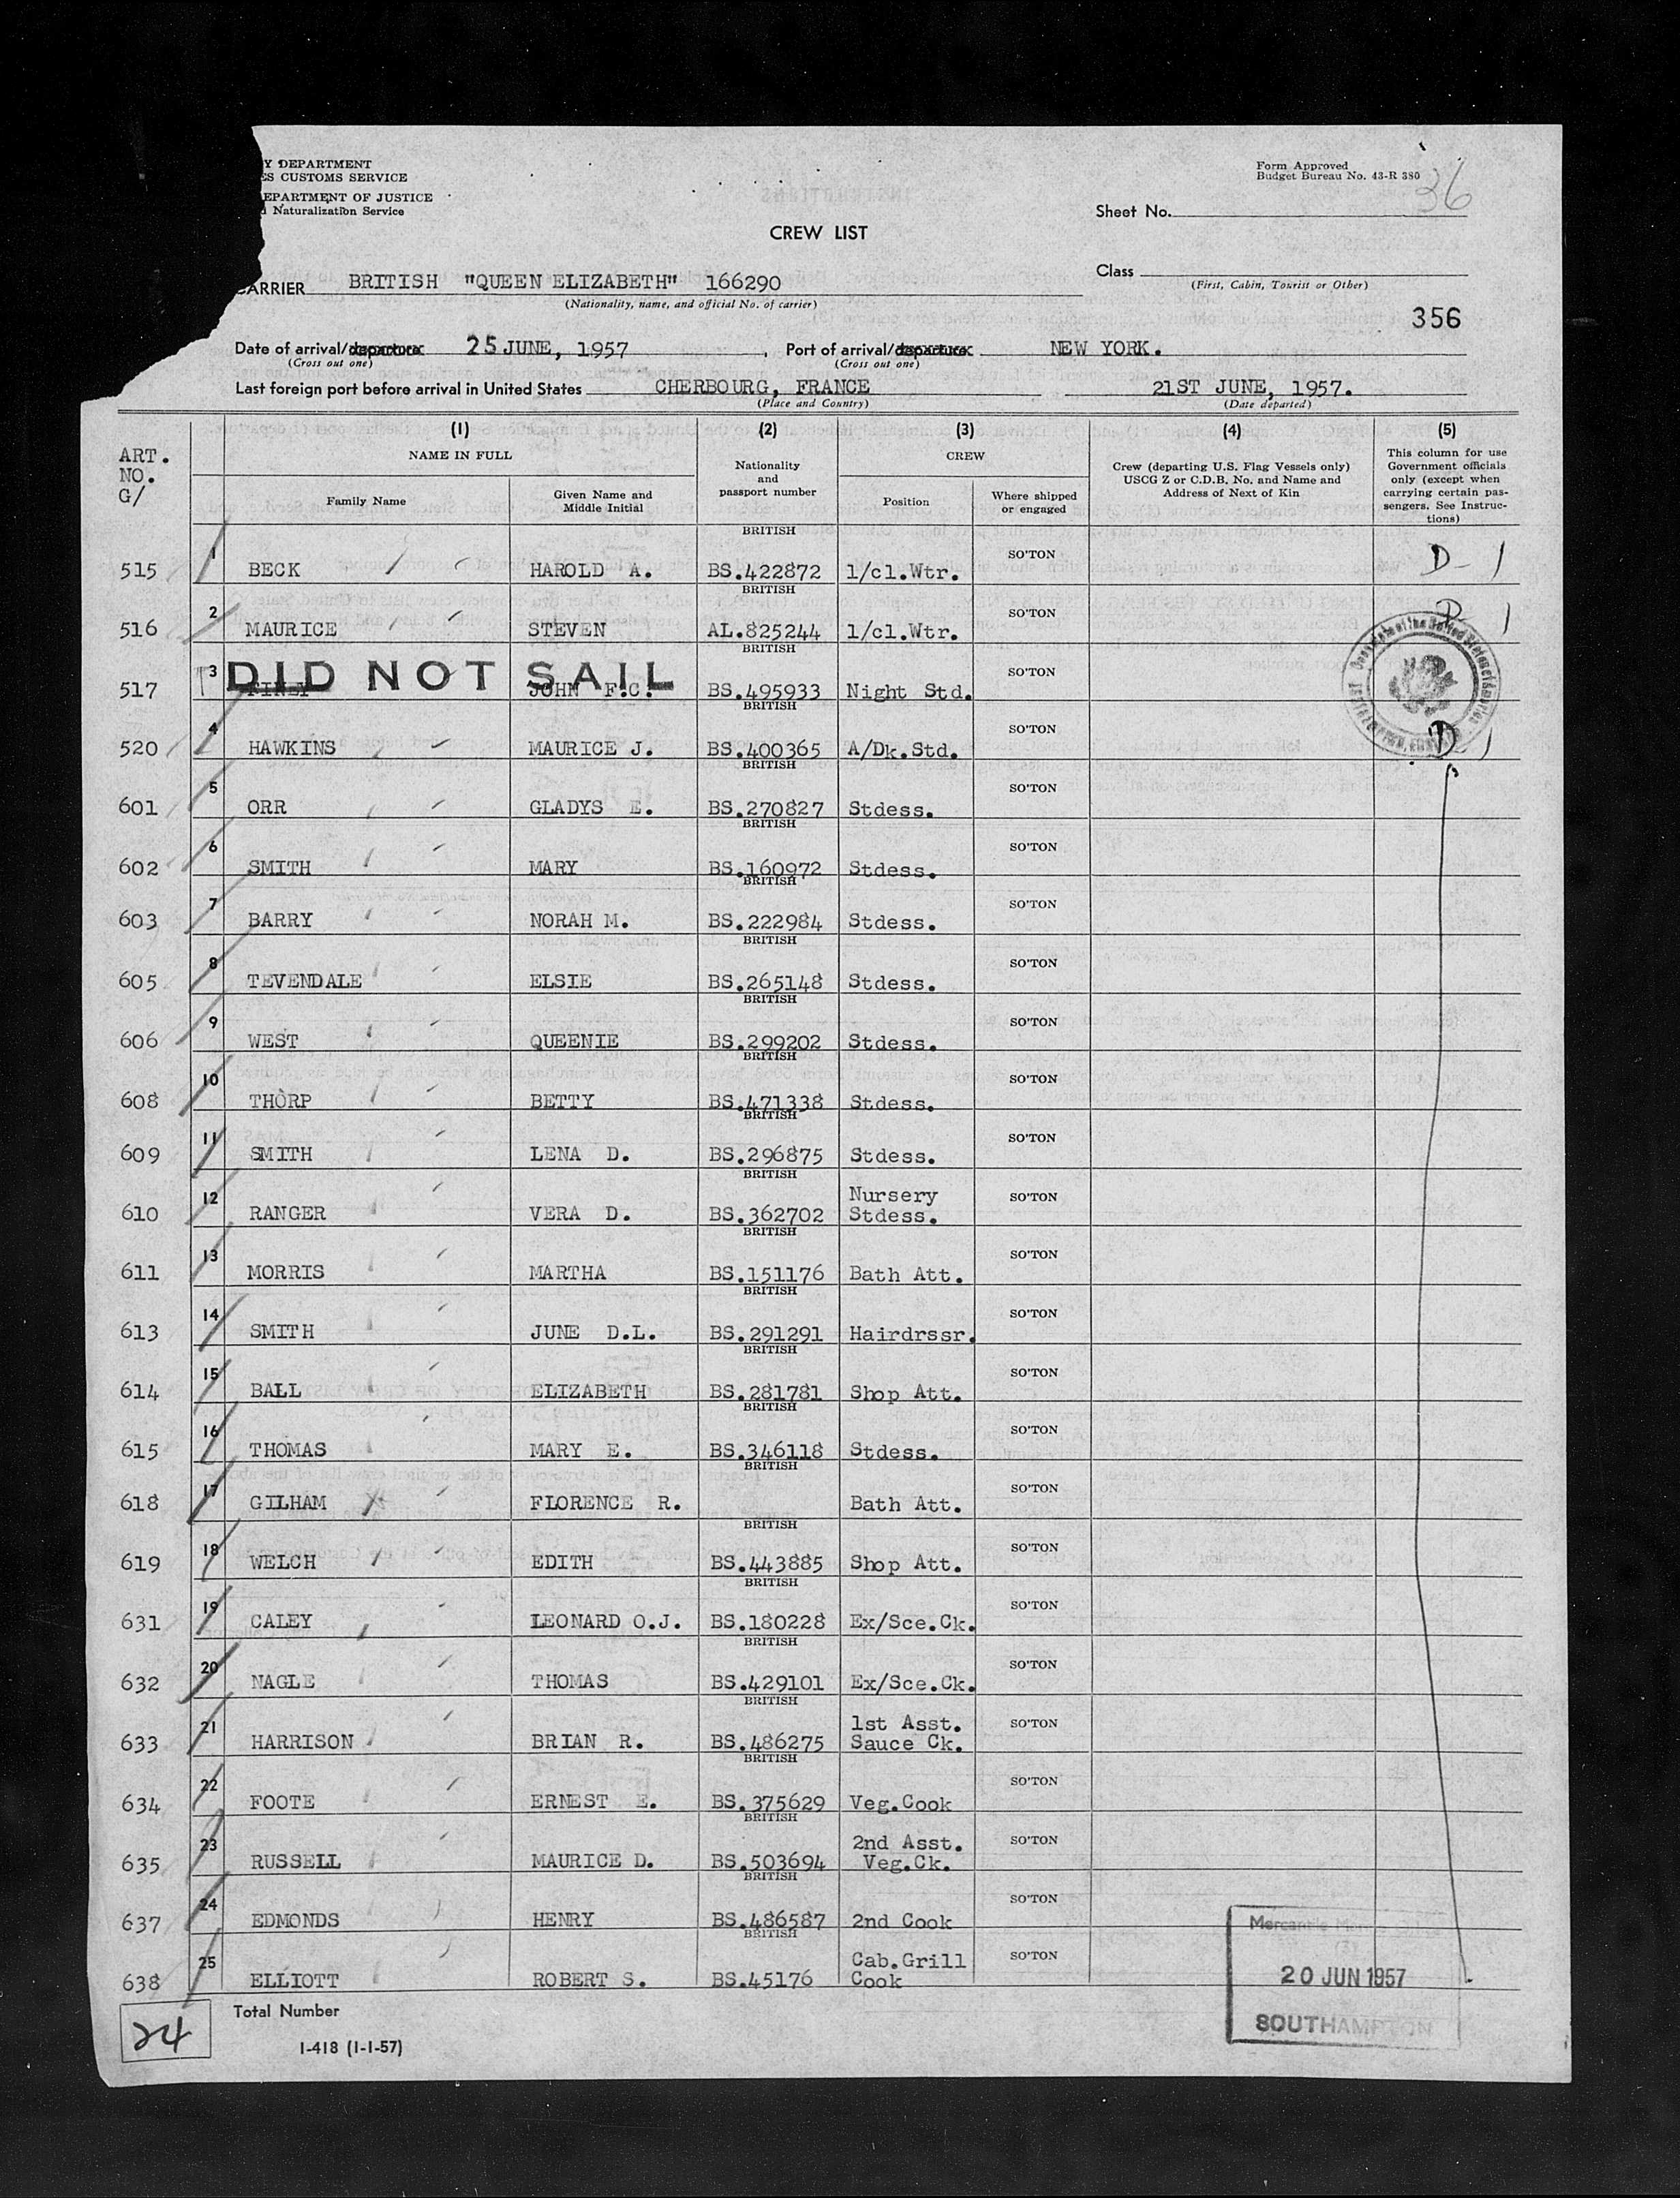 Y DEPARTMENT
ES CUSTOMS SERVICE
EPARTMENT OF JUSTICE
d Naturalization Service
Form Approved
Budget Bureau No. 43-R 380
Sheet No. 36
CREW LIST
Class
(First, Cabin, Tourist or Other)
CARRIER BRITISH "QUEEN ELIZABETH" 166290
(Nationality, name, and official No. of carrier)
356
Date of arrival/departure 25 JUNE, 1957 , Port of arrival/departure NEW YORK.
(Cross out one) (Cross out one)
Last foreign port before arrival in United States CHERBOURG, FRANCE 21ST JUNE, 1957.
(Place and Country) (Date departed)
ART. NO. G/
(1) (2) (3) (4) (5)
NAME IN FULL
Family Name
Given Name and Middle Initial
Nationality and passport number
CREW
Position
Where shipped or engaged
Crew (departing U.S. Flag Vessels only) USCG Z or C.D.B. No. and Name and Address of Next of Kin
This column for use Government officials only (except when carrying certain passengers. See Instructions)
515 1 BECK HAROLD A. BRITISH BS.422872 1/cl.Wtr. SO'TON D - 1
516 2 MAURICE STEVEN BRITISH AL.825244 1/cl.Wtr. SO'TON D 1
517 3 DID NOT SAIL JOHN F.C. BRITISH BS.495933 Night Std. SO'TON
520 4 HAWKINS MAURICE J. BRITISH BS.400365 A/Dk.Std. SO'TON D 1
601 5 ORR GLADYS E. BRITISH BS.270827 Stdess. SO'TON
602 6 SMITH MARY BRITISH BS.160972 Stdess. SO'TON
603 7 BARRY NORAH M. BRITISH BS.222984 Stdess. SO'TON
605 8 TEVENDALE ELSIE BRITISH BS.265148 Stdess. SO'TON
606 9 WEST QUEENIE BRITISH BS.299202 Stdess. SO'TON
608 10 THORP BETTY BRITISH BS.471338 Stdess. SO'TON
609 11 SMITH LENA D. BRITISH BS.296875 Stdess. SO'TON
610 12 RANGER VERA D. BRITISH BS.362702 Nursery Stdess. SO'TON
611 13 MORRIS MARTHA BRITISH BS.151176 Bath Att. SO'TON
613 14 SMITH JUNE D.L. BRITISH BS.291291 Hairdrssr. SO'TON
614 15 BALL ELIZABETH BRITISH BS.281781 Shop Att. SO'TON
615 16 THOMAS MARY E. BRITISH BS.346118 Stdess. SO'TON
618 17 GILHAM FLORENCE R. BRITISH Bath Att. SO'TON
619 18 WELCH EDITH BRITISH BS.443885 Shop Att. SO'TON
631 19 CALEY LEONARD O.J. BRITISH BS.180228 Ex/Sce.Ck. SO'TON
632 20 NAGLE THOMAS BRITISH BS.429101 Ex/Sce.Ck. SO'TON
633 21 HARRISON BRIAN R. BRITISH BS.486275 1st Asst. Sauce Ck. SO'TON
634 22 FOOTE ERNEST E. BRITISH BS.375629 Veg.Cook SO'TON
635 23 RUSSELL MAURICE D. BRITISH BS.503694 2nd Asst. Veg.Ck. SO'TON
637 24 EDMONDS HENRY BRITISH BS.486587 2nd Cook SO'TON
638 25 ELLIOTT ROBERT S. BRITISH BS.45176 Cab.Grill Cook SO'TON
Mercantile
20 JUN 1957
SOUTHAMPTON
24
Total Number
I-418 (1-1-57)